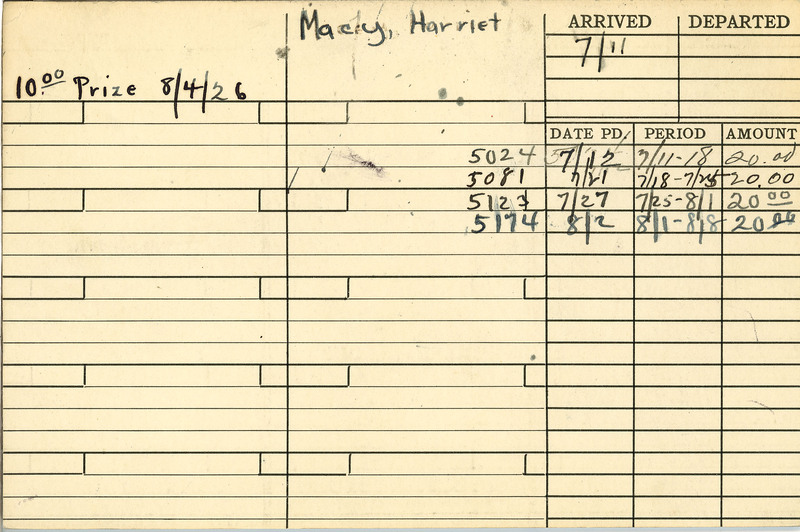 Macey, Harriet
ARRIVED DEPARTED
7/11
10.00 Prize 8/4/26
DATE PD. PERIOD AMOUNT
5024 7/12 7/11-18 20.00
5081 7/21 7/18-7/25 20.00
5127 7/27 7/25-8/1 20.00
5174 8/2 8/1-8/8 20.00